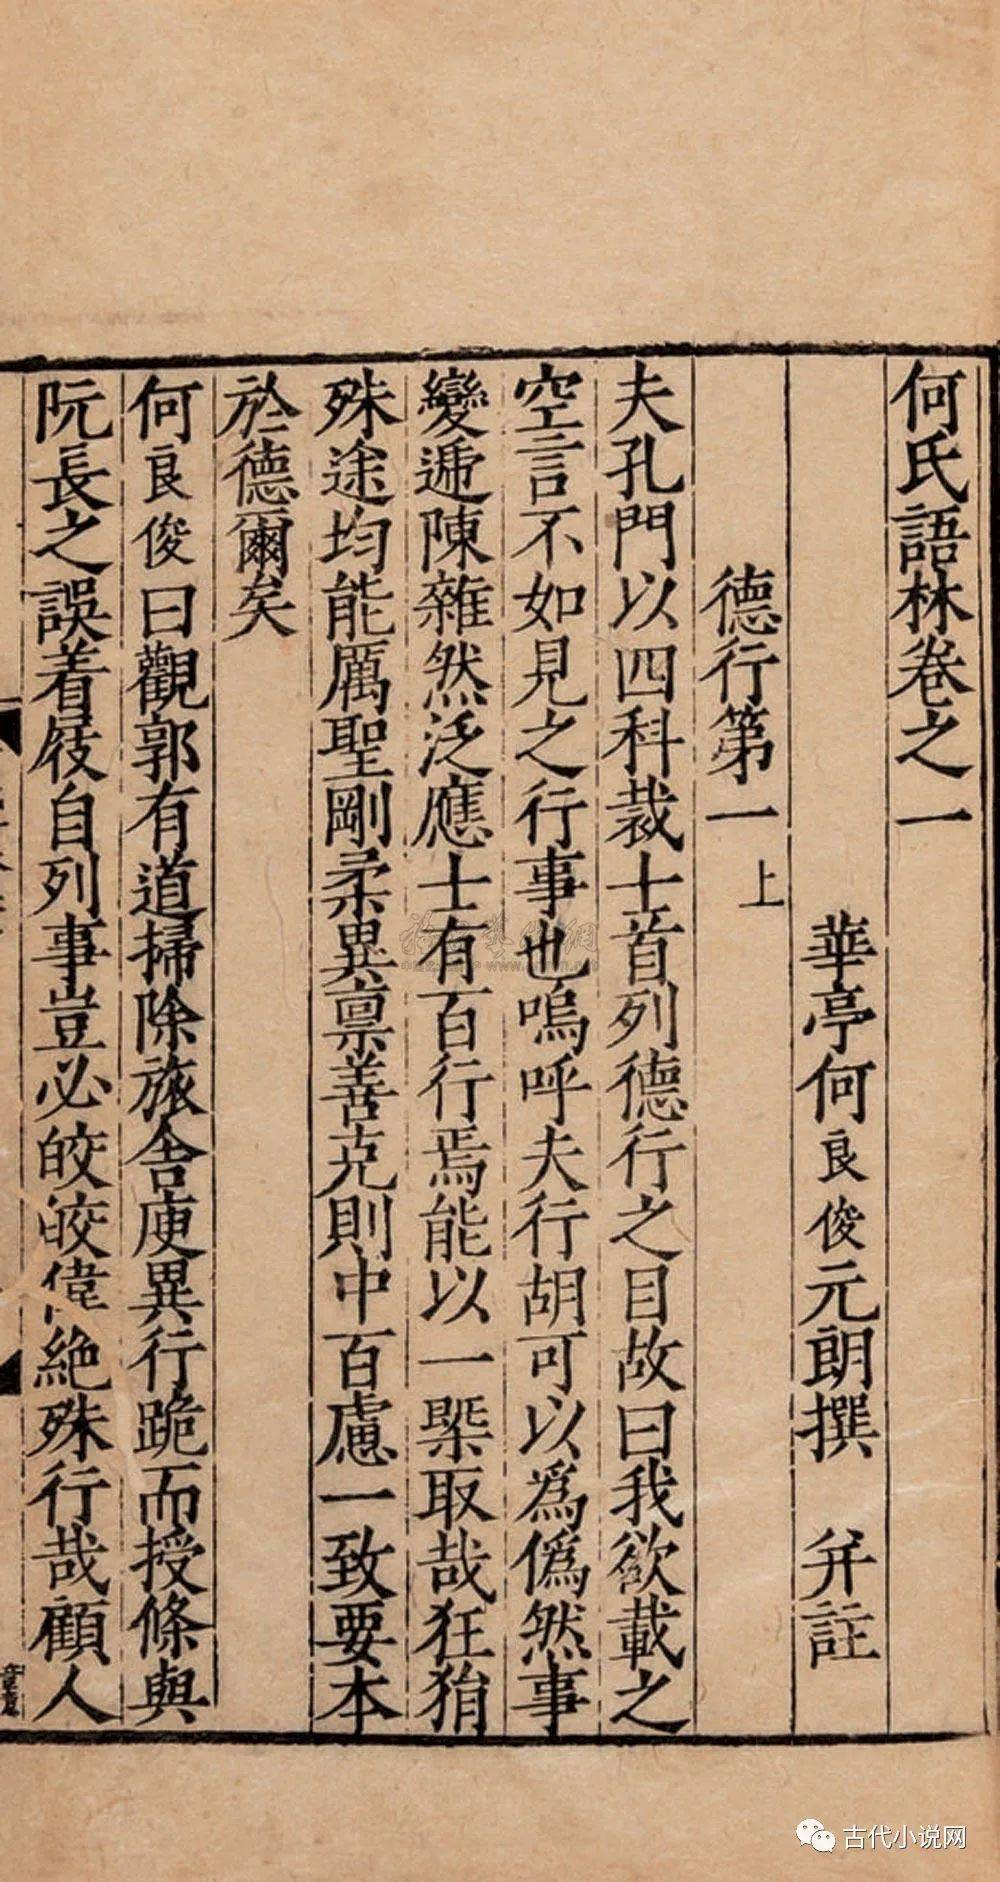 何氏語林卷之一
華亭何良俊元朗撰 并註
德行第一 上
夫孔門以四科裁士首列德行之目故曰我欲載之
空言不如見之行事也嗚呼夫行胡可以爲僞然事
變遞陳雜然泛應士有百行焉能以一槩取哉狂狷
殊途均能厲聖剛柔異禀善克則中百慮一致要本
於德爾矣
何良俊曰觀郭有道掃除旅舎庾異行跪而授條與
阮長之誤着屐自列事豈必皎皎偉絶殊行哉顧人
古代小说网